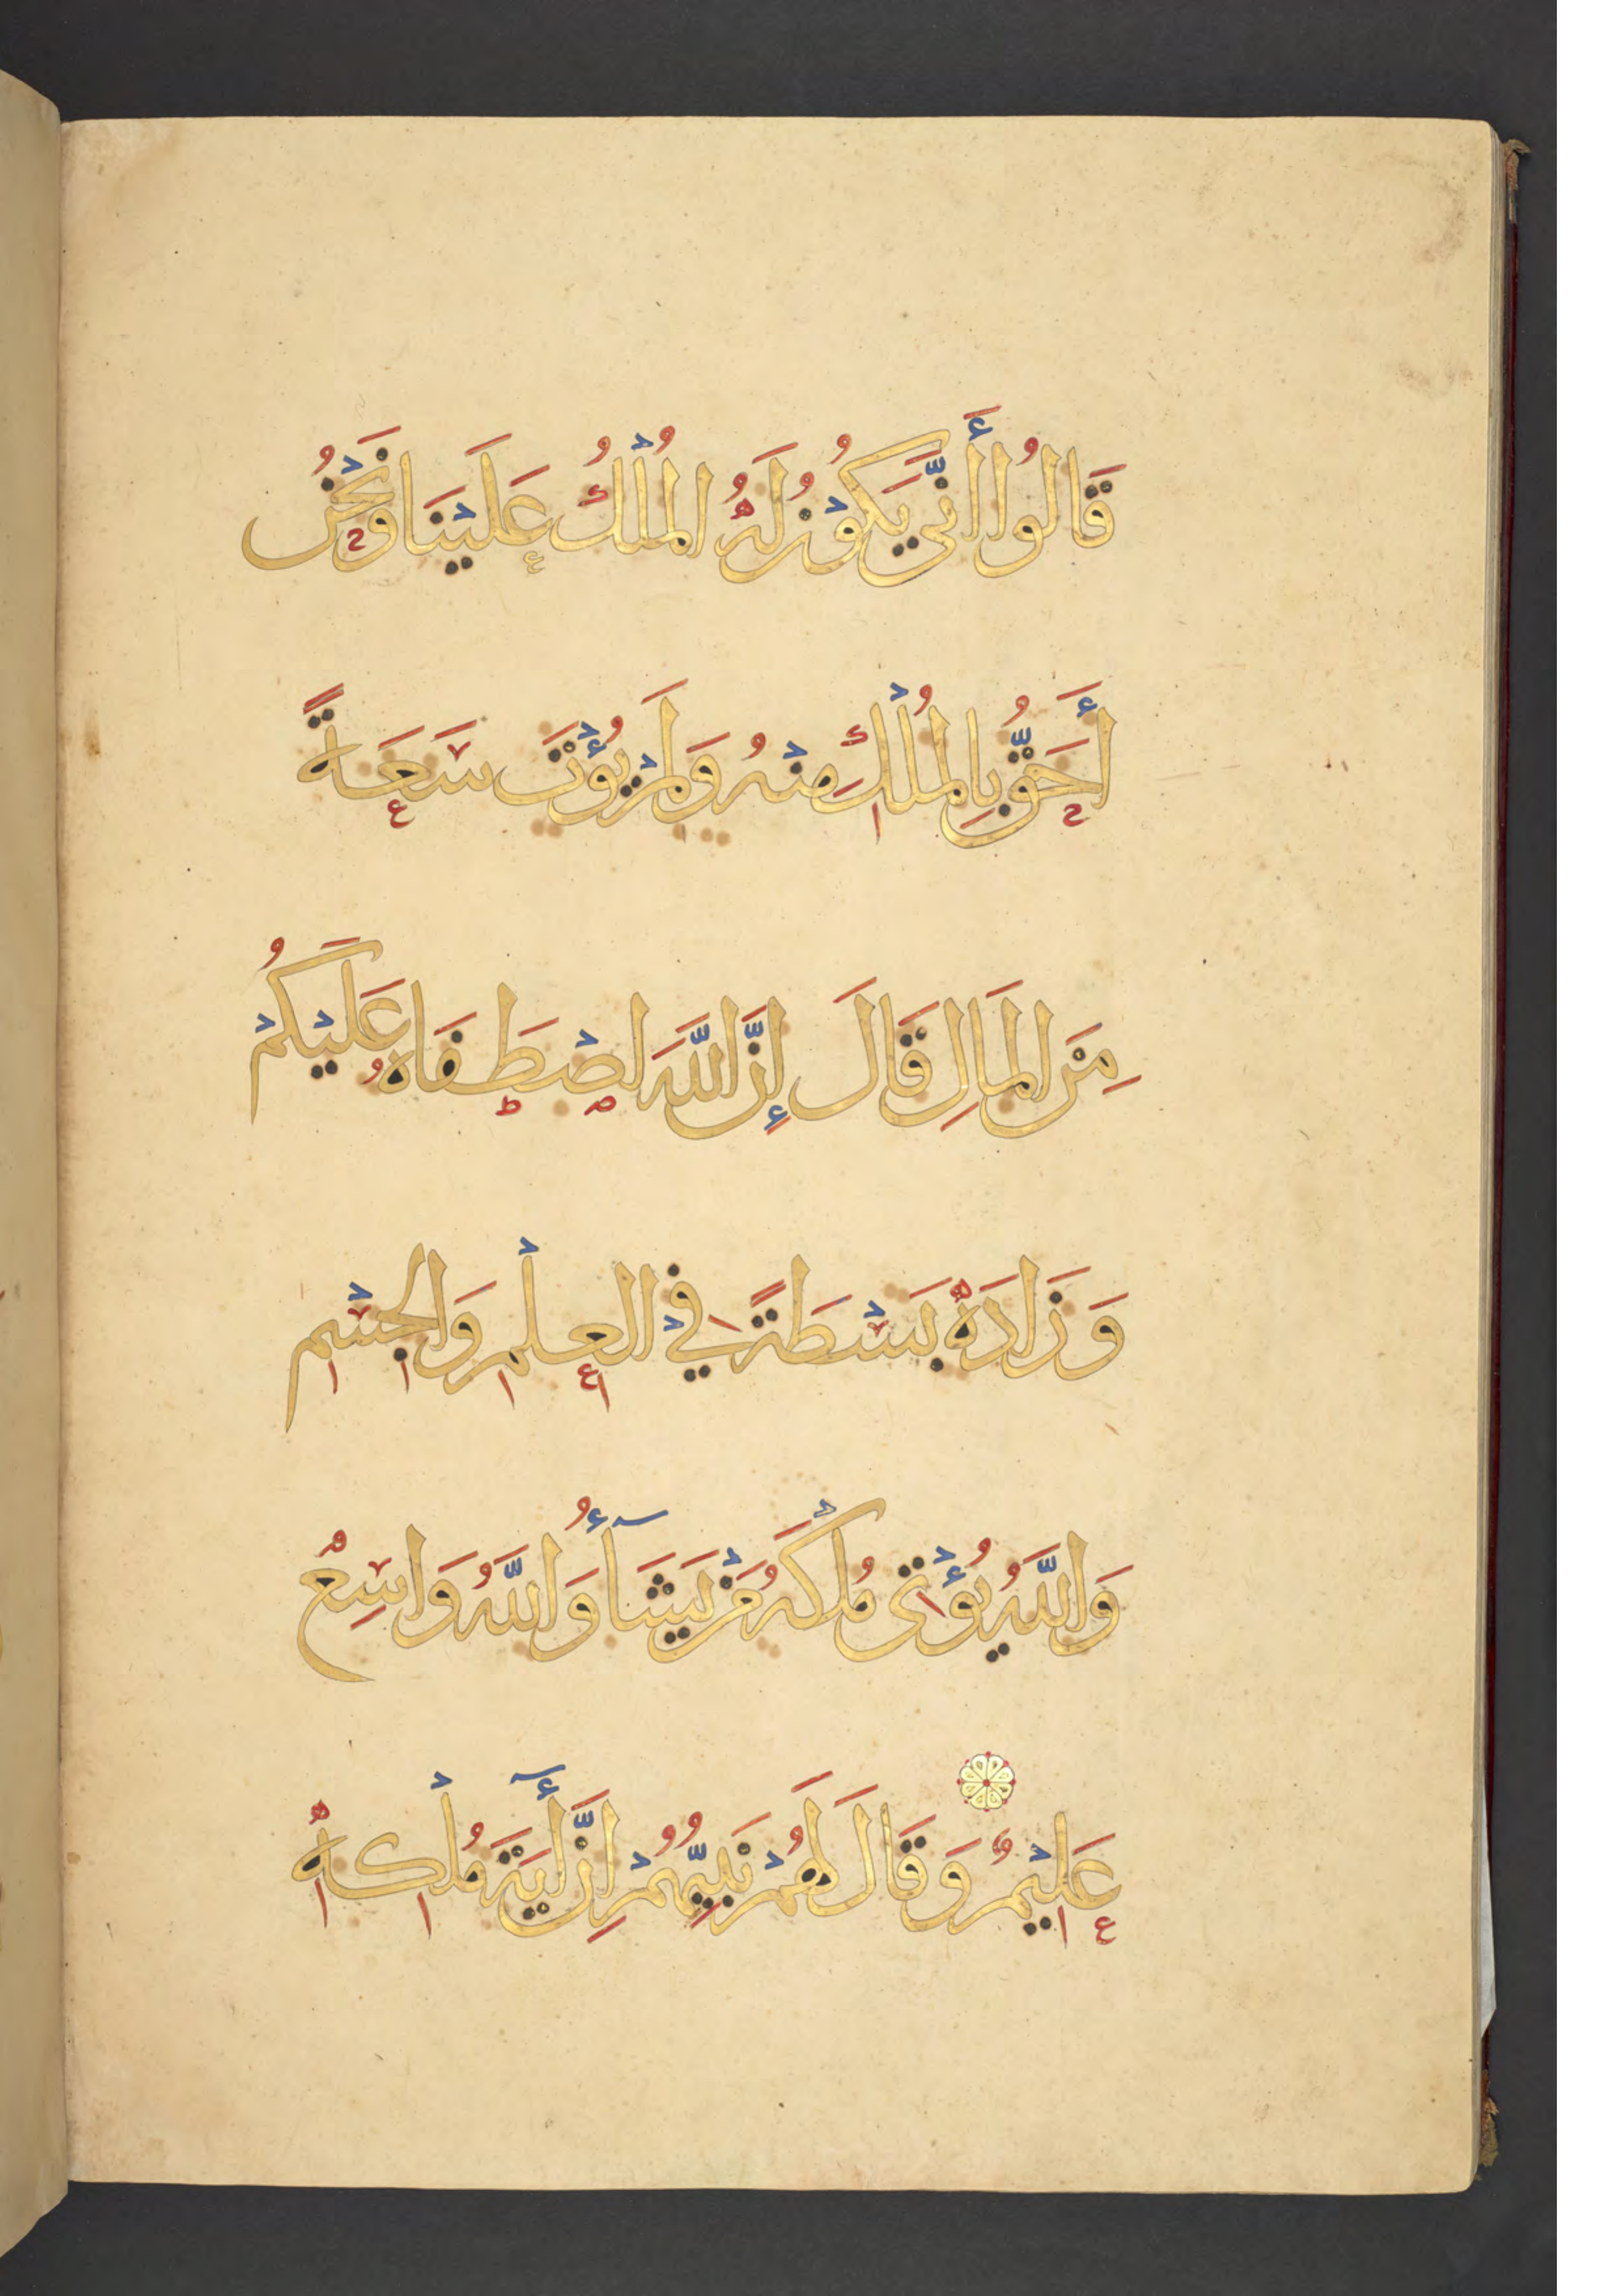 قَالُوا أَنَّى يَكُونُ لَهُ الْمُلْكُ عَلَيْنَا وَنَحْنُ
أَحَقُّ بِالْمُلْكِ مِنْهُ وَلَمْ يُؤْتَ سَعَةً
مِنَ الْمَالِ قَالَ إِنَّ اللَّهَ اصْطَفَاهُ عَلَيْكُمْ
وَزَادَهُ بَسْطَةً فِي الْعِلْمِ وَالْجِسْمِ
وَاللَّهُ يُؤْتِي مُلْكَهُ مَنْ يَشَآءُ وَاللَّهُ وَاسِعٌ
عَلِيمٌ وَقَالَ لَهُمْ نَبِيُّهُمْ إِنَّ أَيَةَ مُلْكِهِ